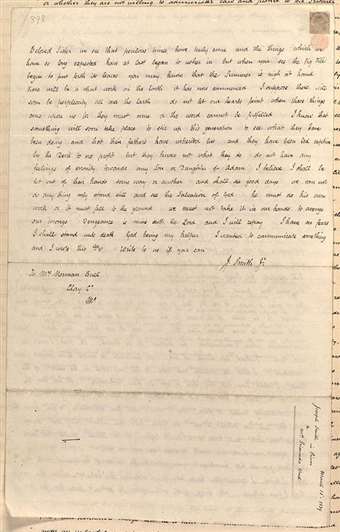 Beloved Sister we see that perilous times have truly come and the things which we
have so long expected have at last began to usher in but when you see the fig tree
begin to put forth its leaves you may know that the Summer is nigh at hand
there will be a short work on the Earth it has now commenced I suppose there will
soon be perplexity all over the Earth do not let our hearts faint when these things
come upon us for they must come or the word cannot be fulfilled I know that
something will soon take place to stir up this generation to see what they have
been doing and that their fathers have inherited lies and they have been led captive
by the Devil to no profit but they know not what they do do not have any
feelings of enmity towards any Son or Daughter of Adam I believe I shall be
let out of their hands some way or another and shall see good days we can not
do any thing only stand still and see the Salvation of God he must do his own
work or it must fall to the ground we must not take it in our hands to avenge
our wrongs Vengeance is mine saith the Lord and I will repay I have no fears
I shall stand unto death God being my helper I wanted to communicate something
and I wrote this &c Write to us if you can
J. Smith Jr.
To Mrs Norman Buell
Clay Co
Mo
Joseph Smith in Prison
to
Mrs Norman Buell
March 15. 1839